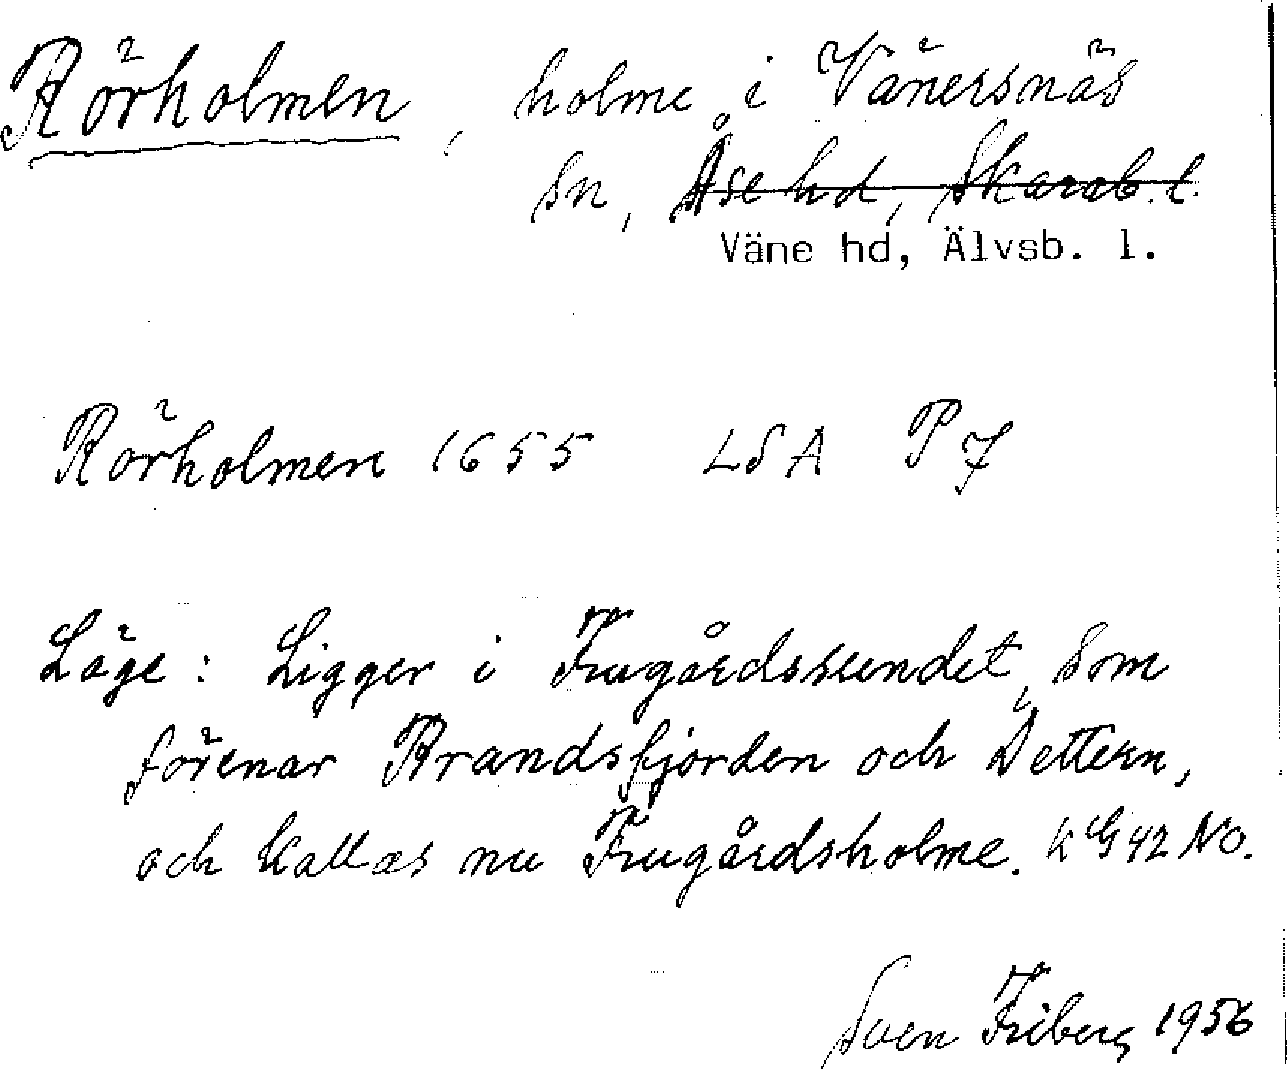 Rörholmen, holme i Vänersnäs
sn, Åse hd, Skarab. l.
Väne hd, Älvsb. l.
Rörholmen 1655 LSA P 7
Läge: Ligger i Frugårdssundet, som
förenar Brandsfjorden och Dettern,
och kallas nu Frugårdsholme. K G 42 NO.
Sven Friberg 1956